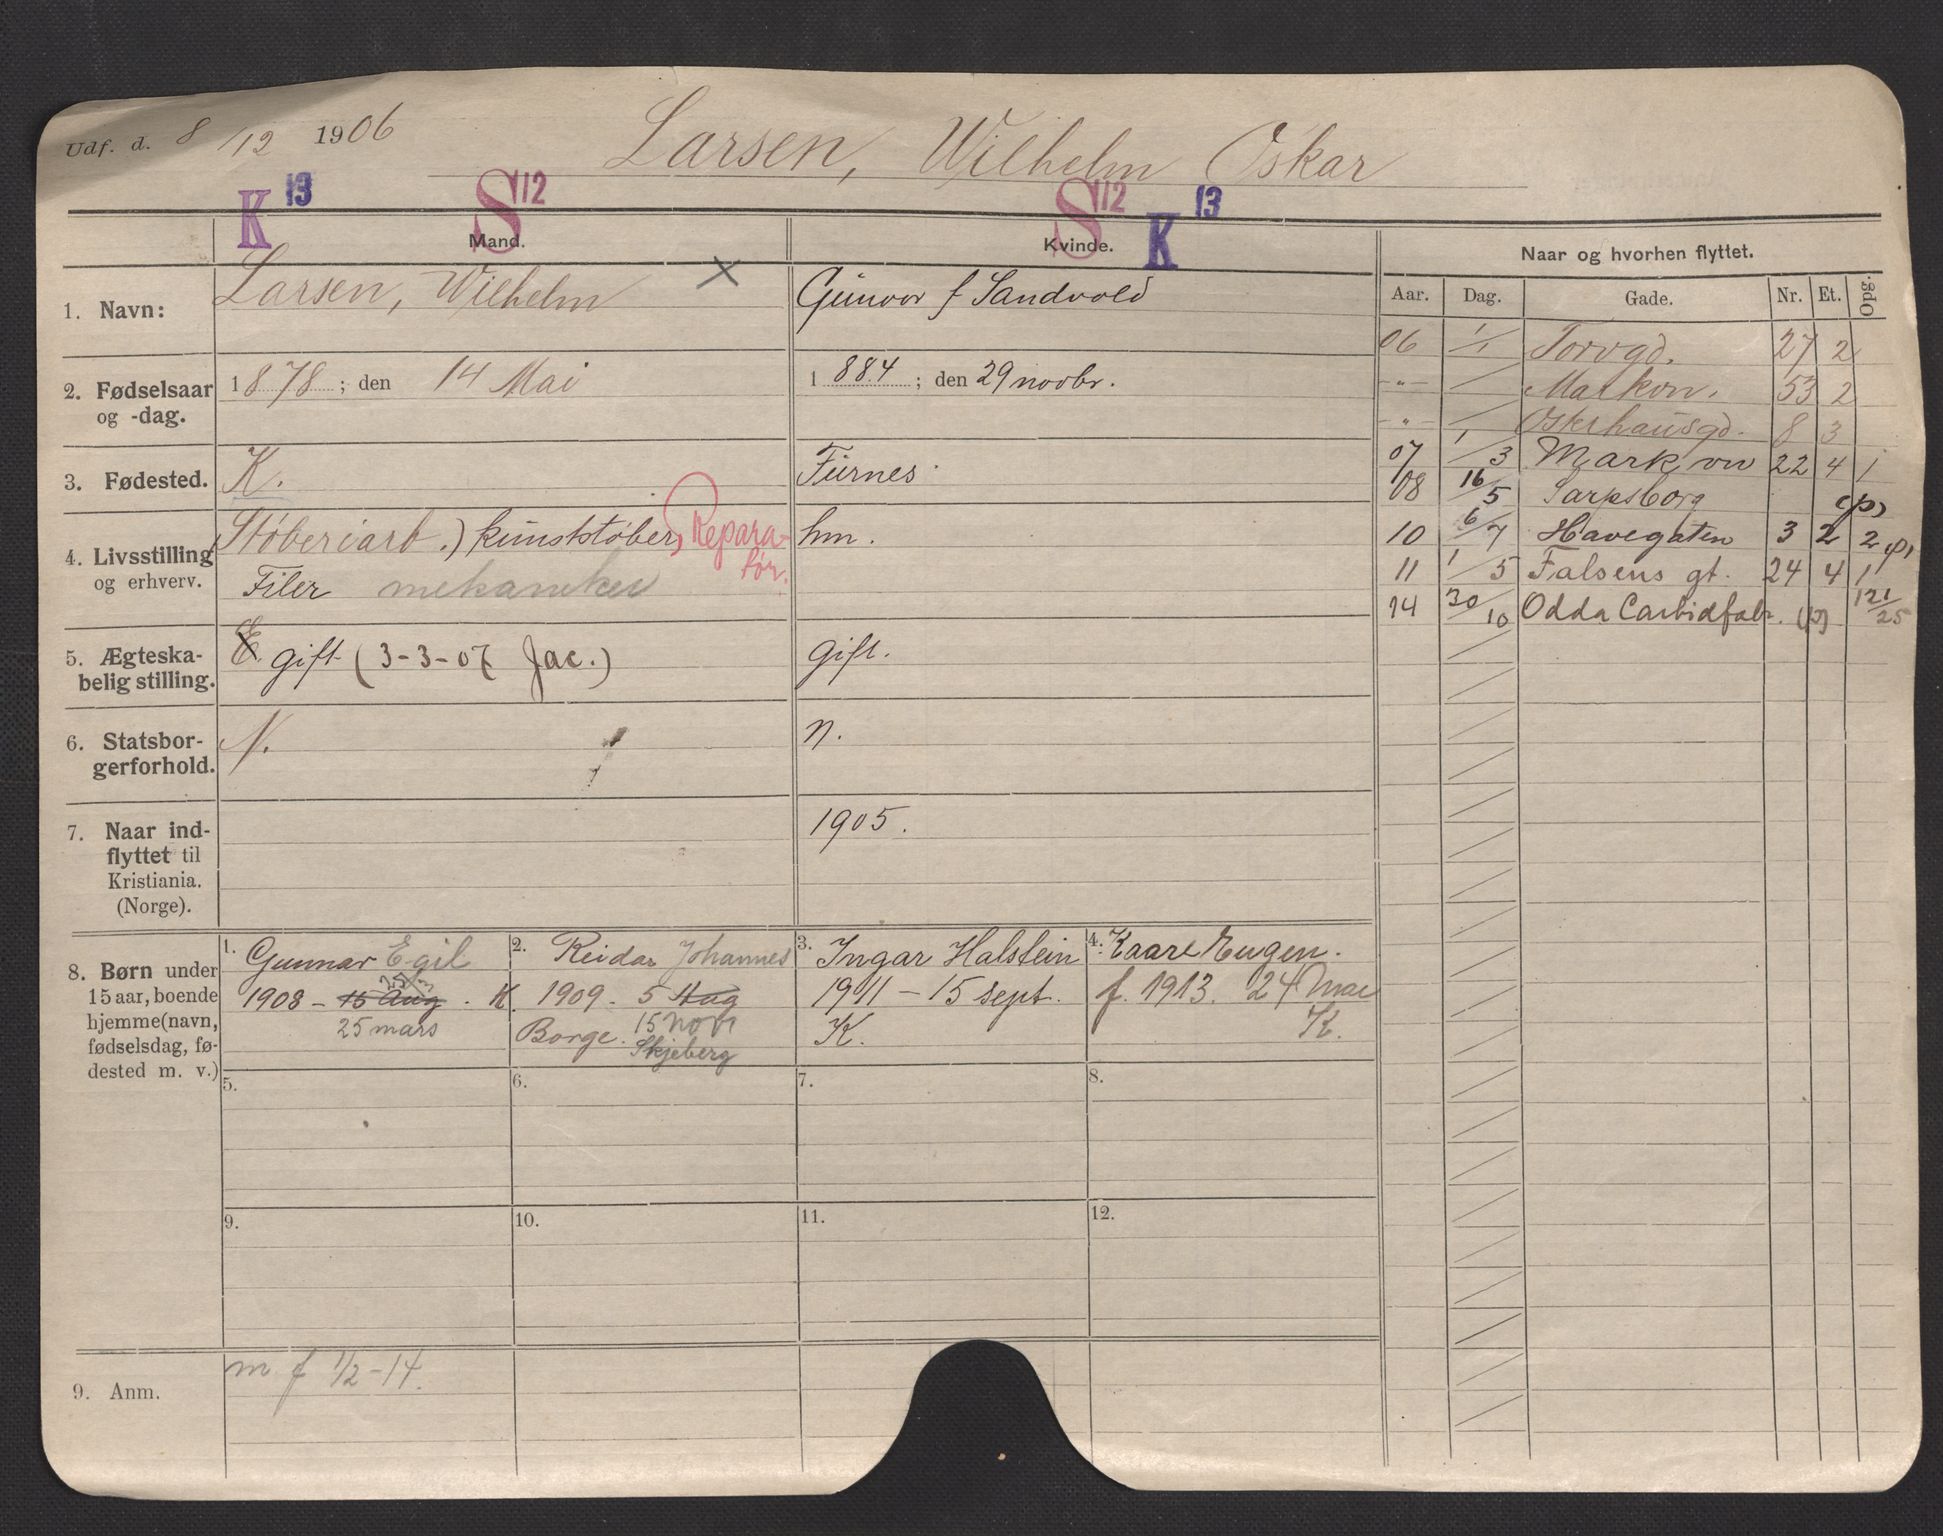 Udf. d. 8/12 1906
Larsen, Wilhelm Oskar
K 13 S 112 S 112 K 13
Mand. Kvinde. Naar og hvorhen flyttet.
Aar. Dag. Gade. Nr. Et. Opg.
1. Navn: Larsen, Wilhelm Gunvor f Sandvold
2. Fødselsaar og -dag. 1878; den 14 Mai 1884; den 29 novbr.
3. Fødested. K. Furnes.
4. Livsstilling og erhverv. Støberiarb.) kunststøber, Reparatør. hm.
Filer mekaniker
5. Ægteska-
belig stilling. E. gift (3-3-07 Jac.) gift.
6. Statsbor-
gerforhold. N. n.
7. Naar ind-
flyttet til
Kristiania.
(Norge). 1905.
06 1/1 Torvgd. 27 2
-"- / Markvn. 53 2
-"- / Oskrhausgd. 8 3
07 1/3 Markvn 22 4 1
08 16/5 Sarpsborg (p)
10 6/7 Havegaten 3 2 2 (p)
11 1/5 Falsens gt. 24 4 1
14 30/10 Odda Carbidfabr. (p) 121/25
8. Børn under
15 aar, boende
hjemme (navn,
fødselsdag, fø-
dested m. v.)
1. Gunnar Egil
1908 - 15 Aug. K.
25 mars
2. Reidar Johannes
1909. 5 Aug
Borge. 15 Nov
Skjeberg
3. Ingar Halstein
1911 - 15 sept.
K.
4. Kaare Eugen.
f. 1913. 24 Mai
K.
5. 6. 7. 8.
9. 10. 11. 12.
9. Anm. m f 1/2-14.